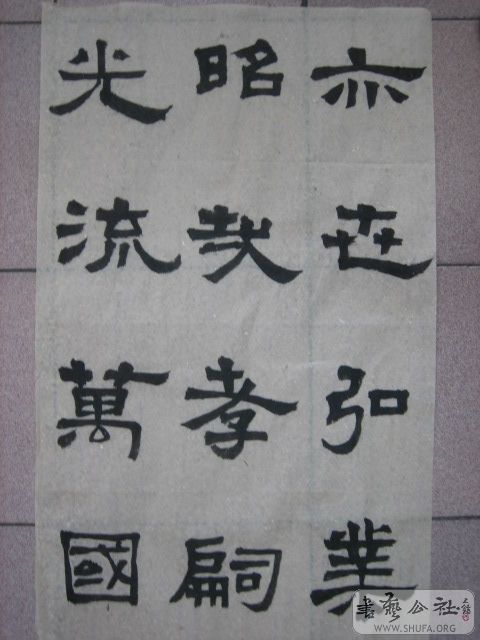 亦世弘業
昭哉孝嗣
光流萬國
書藝公社
WWW.SHUFA.ORG